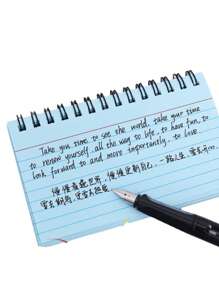 Take you time to see the world, take your time
to renew yourself, all the way to life, to have fun, to
look forward to and more importantly, to love
慢慢看世界，慢慢更新自己，一路人生，要去开心
要去期待，更要去热爱